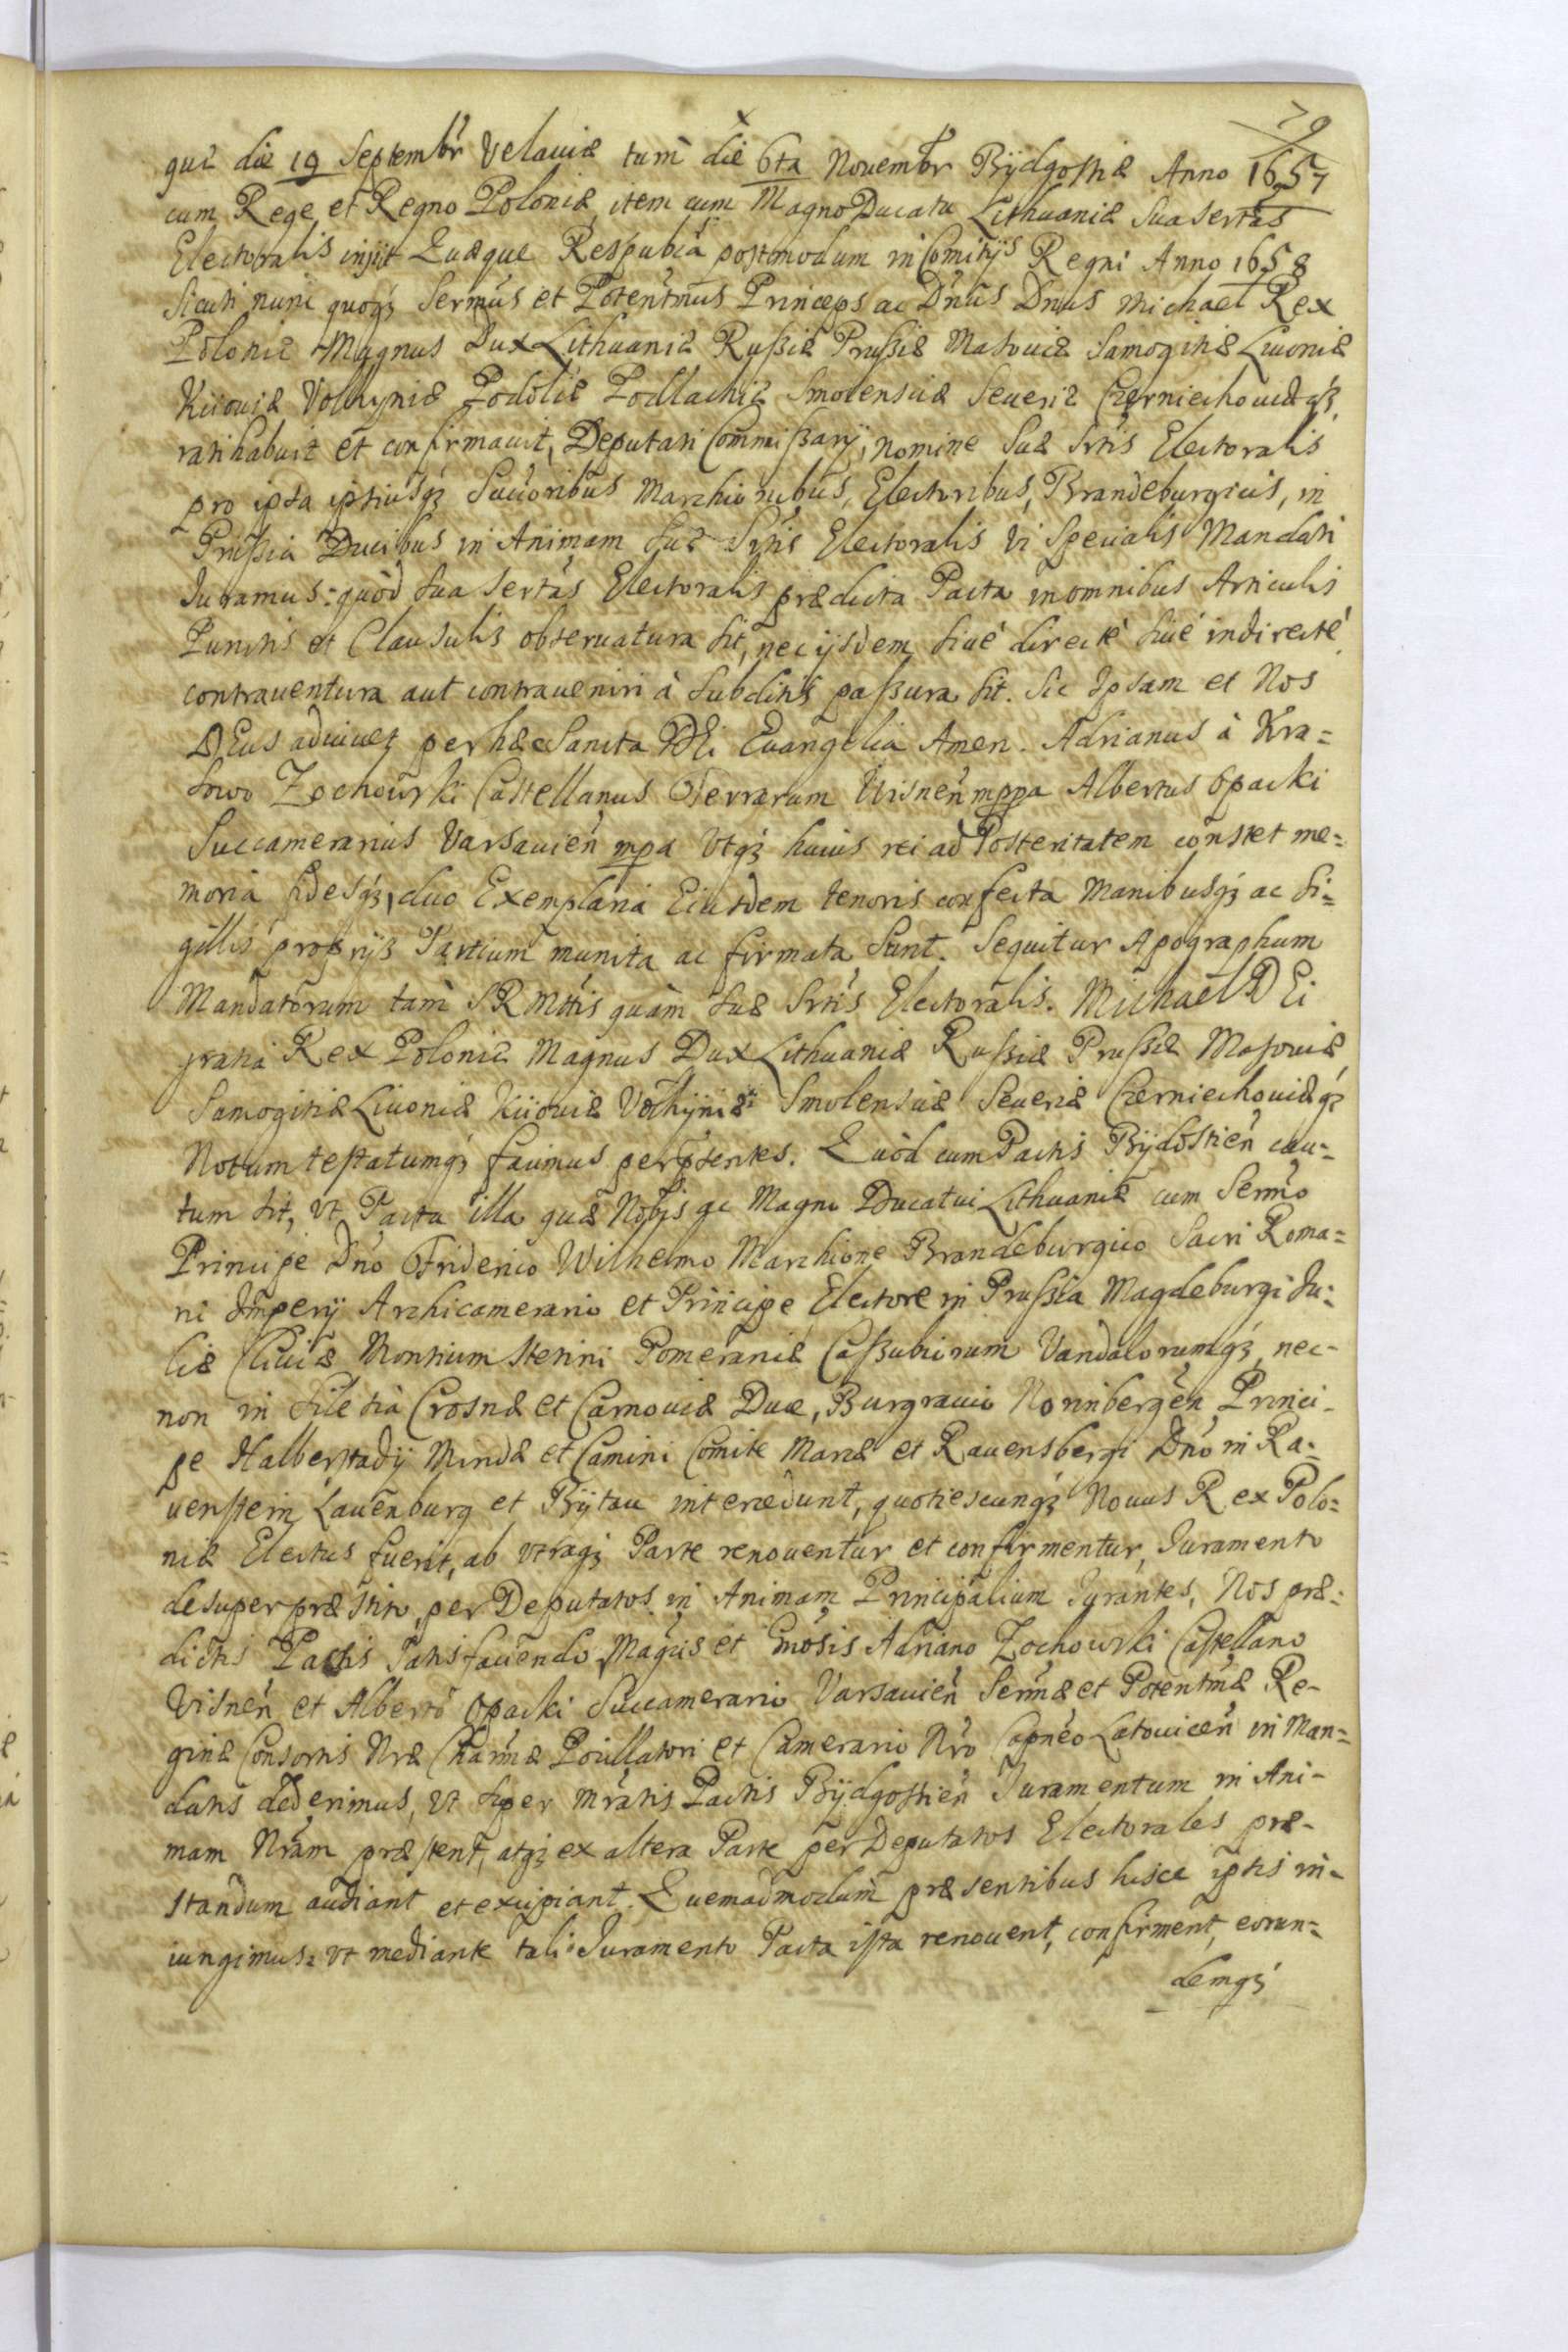 79
quæ die 19 Septembr Velaviæ tum die 6ta Novembr Bÿdgostiæ Anno 1657
cum Rege et Regno Poloniæ, item cum Magno Ducatu Lithuaniæ Sua Sertas
Electoralis injit Quæque Respubca postmodum in Comitijs Regni Anno 1658
Sicuti nunc quoqz Sermus et Potentmus Princeps ac Dnus Dnus Michael Rex
Poloniæ Magnus Dux Lithuaniæ Russiæ Prussiæ Masoviæ Samogitiæ Livoniæ
Kiioviæ Volhyniæ Podoliæ Podlachiæ Smolensciæ Severiæ Czerniechoviæqz
ratihabuit et confirmavit, Deputati Commissarij, nomine Suæ Srtis Electoralis
pro ipsa ipsiusqz Successoribus Marchionibus, Electoribus, Brandeburgicis, in
Prussia Ducibus in Animam Suæ Srtis Electoralis vi Specialis Mandati
Iuramus: quòd Sua Sertas Electoralis prædicta Pacta in omnibus Articulis
Punctis et Clausulis observatura sit, nec ijsdem sivè directè sivè indirectè
contraventura aut contraveniri à Subditis passura sit. Sic Ipsam et Nos
DEus adiuvet per hæc Sancta DEi Evangelia Amen. Adrianus à Kra=
sowo Zochowski Castellanus Terrarum Visnen mppa Albertus Opacki
Succamerarius Varsavien mpa Vtqz huius rei ad Posteritatem constet me=
moria fidesqz, duo Exemplaria Eiusdem tenoris confecta Manibusqz ac Si=
gillis proprijs Partium munita ac firmata Sunt. Sequitur Apographum
Mandatorum tam SRMttis quàm Suæ Srtis Electoralis. Michael DEi
gratia Rex Poloniæ Magnus Dux Lithuaniæ Russiæ Prussiæ Masoviæ
Samogitiæ Livoniæ Kiioviæ Volhyniæ Smolensciæ Severiæ Czerniechoviæqz
Notum testatumqz facimus per pntes. Quòd cum Pactis Bÿdgostien cau=
tum sit, vt Pacta illa quæ Nobis ac Magno Ducatui Lithuaniæ cum Sermo
Principe Dno Friderico Wilhelmo Marchione Brandeburgico Sacri Roma=
ni Imperij Archicamerario et Principe Electore in Prussia Magdeburgi Iu=
liæ Cliviæ Montium Stetini Pomeraniæ Cassubiorum Vandalorumqz nec-
non in Silesia Crosnæ et Carnoviæ Duce, Burgravio Norinbergen Princi-
pe Halberstadij Mindæ et Camini Comite Marcæ et Ravensbergi Dno in Ra=
venstein Lauenburg et Bÿtau intercedunt, quotiescunqz Novus Rex Polo=
niæ Electus fuerit, ab vtraqz Parte renoventur et confirmentur, Iuramento
desuper præstito per Deputatos in Animam Principalium Iurantes, Nos præ=
dictis Pactis Satisfaciendo Magcis et Gnosis Adriano Zochowski Castellano
Visnen et Alberto Opacki Succamerario Varsavien Sermæ et Potentmæ Re-
ginæ Consortis Nræ Charmæ Pocillatori et Camerario Nro Capneo Latovicen in Man=
datis dederimus, vt super mratis Pactis Bÿdgostien Iuramentum in Ani-
mam Nram præstent, atqz ex altera Parte per Deputatos Electorales præ-
standum audiant et excipiant. Quemadmodum præsentibus hisce ipsis in-
iungimus: vt mediante tali Iuramento Pacta ista renovent, confirment, eorun=
demqz